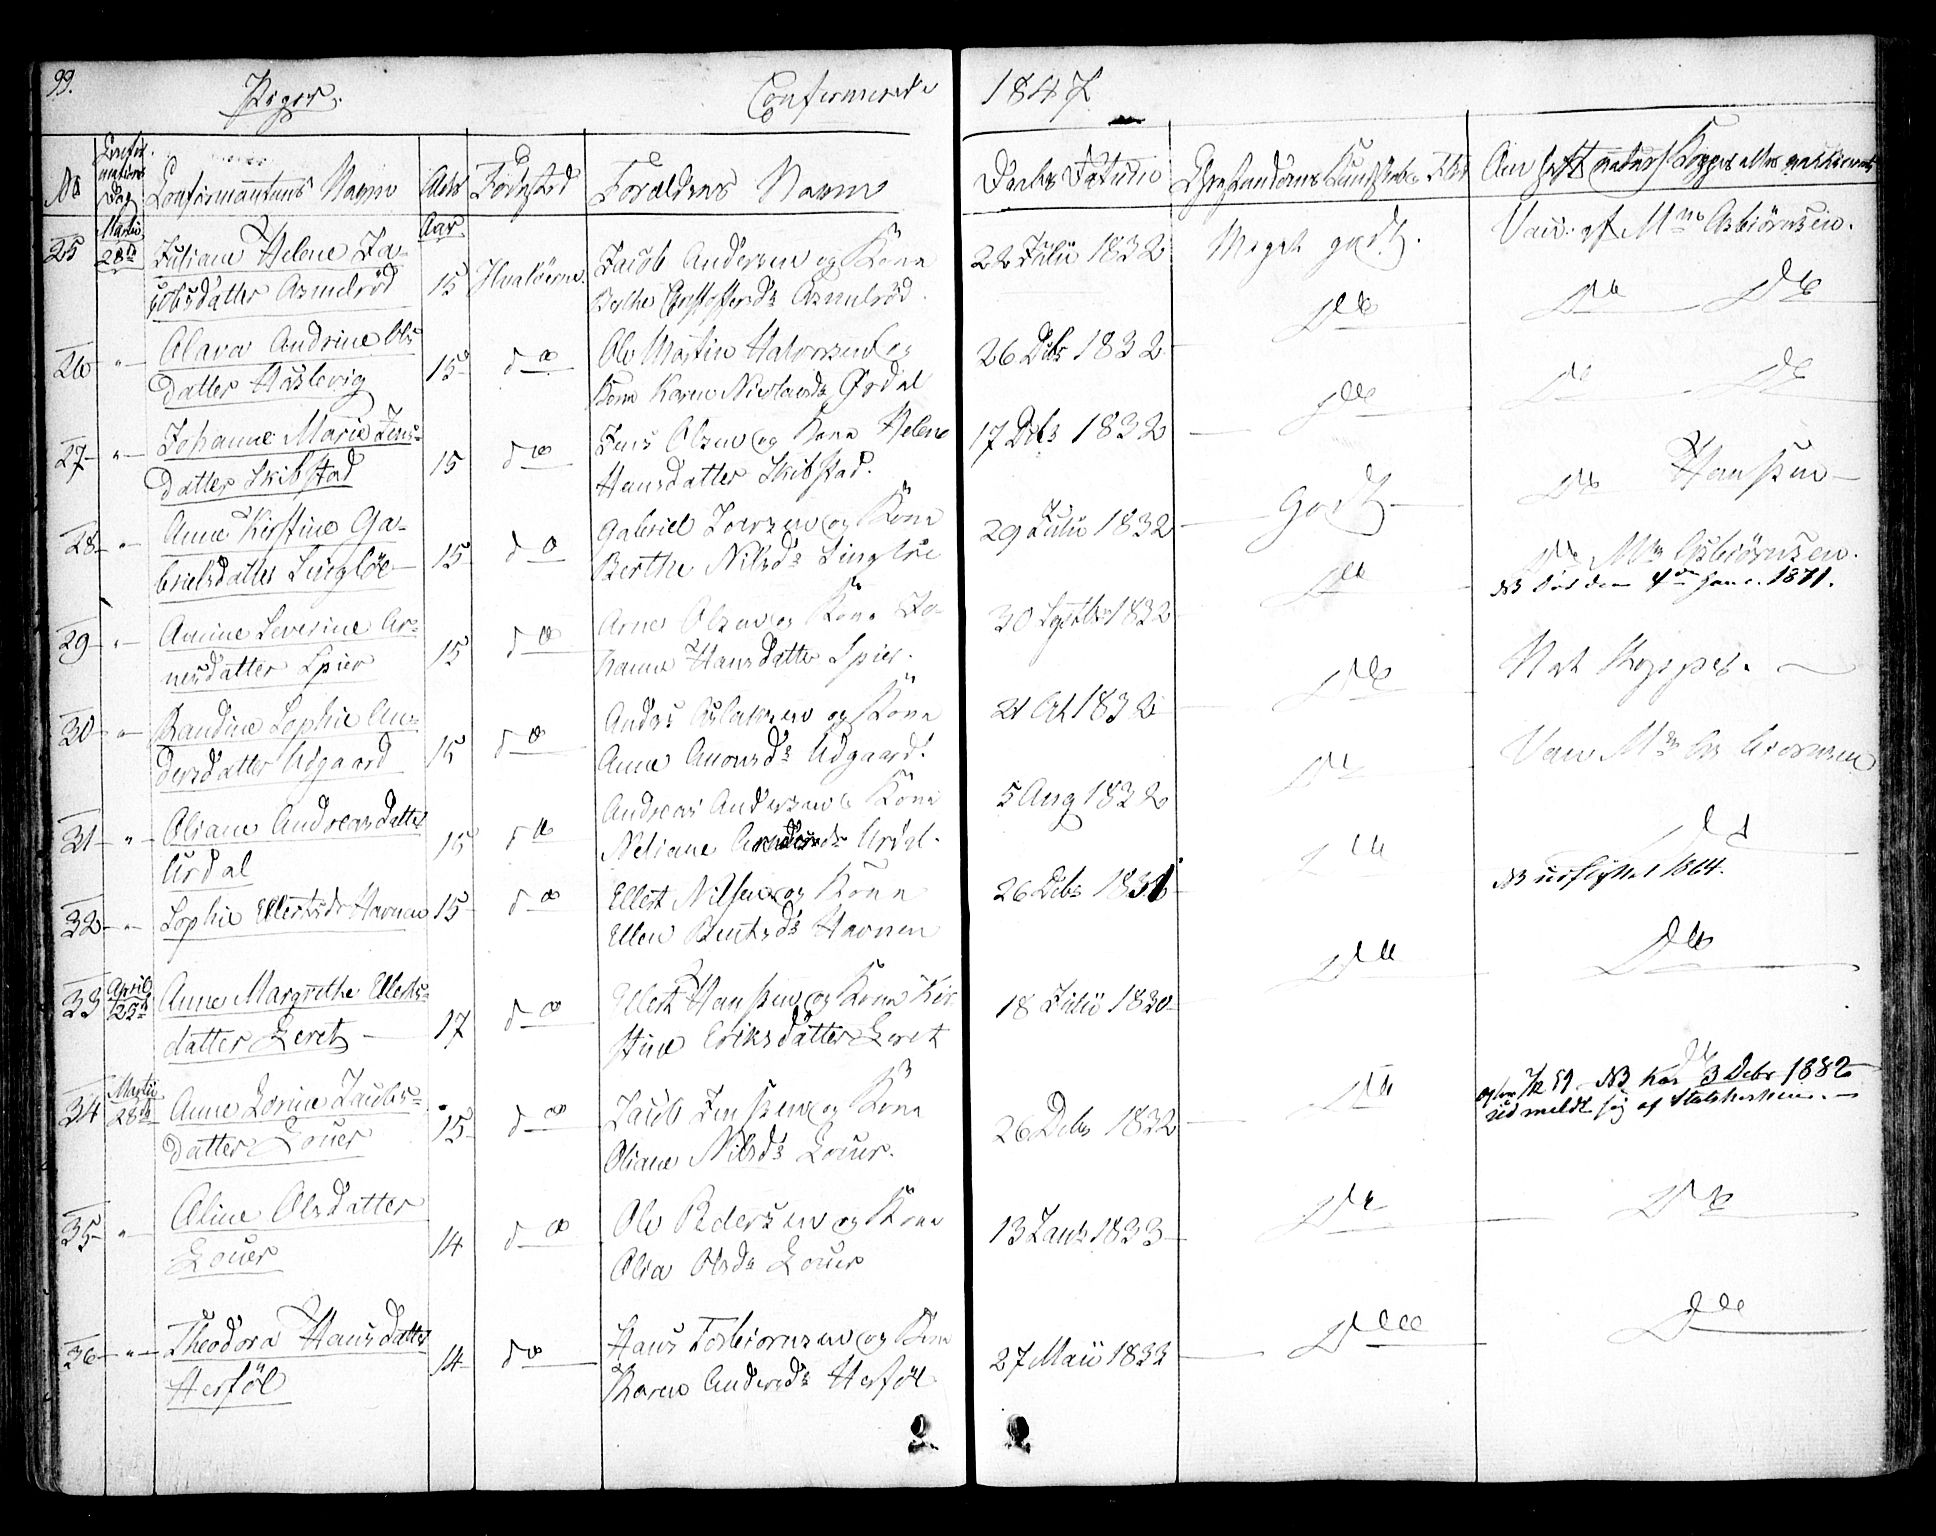 99.
Piger.
Confirmerede 1847
No
Confirmations Dag
Confirmantens Navn
Alder
Fødested
Forældrenes Navne
Deres Datum
Christendoms Kundskaber
Om havt naturl Kopper eller vaccineret
Aar.
25 Martii 28de Juliane Helene Ja-
cobsdatter Asmelröd 15 Hvalöerne
Jacob Andersen og Kone
Berthe Christoffersdr Asmelröd.
22 Julii 1832 Meget godt. Vaci. af Mr Asbiörnsen.
26 " Olava Andrine Ols
datter Haslevig 15 do
Ole Martin Halvorsen og
Kone Karen Nielsdr Ørdal
26 Debr 1832 Do Do Do
27 " Johanne Marie Jens-
datter Skibstad 15 do
Jens Olsen og Kone Helene
Hansdatter Skibstad.
17 Debr 1832 Do Do Do
28 " Anne Kirstine Ga-
brielsdatter Singlöe 15 do
Gabriel Larsen og Kone
Berthe Nilsdr Singlöe
29 Julii 1832 Godt Do Hansen
29 " Amine Severine Ar-
nesdatter Spier 15 do
Arne Olsen og Kone Jo-
hanne Hansdatter Spier.
30 Septbr 1832 Do Do Mr Asbiörnsen.
NB död den 4de 1871.
30 " Randine Sophie An-
dersdatter Udgaard 15 do
Anders Aslaksen og Kone
Anne Amonsdr Udgaard.
21 Oct 1832 Do Nat Kopper.
31 " Oliane Andreasdatter
Urdal 15 do
Andreas Andersen & Kone
Neliane Urdal.
5 Aug 1832 Do Vaci Mr Asbiörnsen
32 " Sophie Ellertsdr Havnen 15 do
Ellert Nilsen og Kone
Ellen Berntsdr Havnen
26 Debr 1831 Do Do
NB udflyttet 1864.
33 April 25de Anne Margrethe Ellerts-
datter Leret 17 do
Ellert Hansen og Kone Kir-
stine Eriksdatter Leret
18 Julii 1830 Do Do
34 Martii 28de Anne Lorine Jacobs-
datter Löuer 15 do
Jacob Jensen og Kone
Oliane Nilsdr Löuer.
26 Debr 1832 Do Do
7/12 59 NB har 3 Debr 1882
udmeldt sig af Statskirken.
35 " Oline Olsdatter
Löuer 14 do
Ole Pedersen og Kone
Olea Olsdr Löuer
13 Janr 1833 Do Do
36 " Theodora Hansdatter
Herföl 14 do
Hans Torbiörnsen og Kone
Karen Andersdr Herföl
27 Maii 1833 Do Do